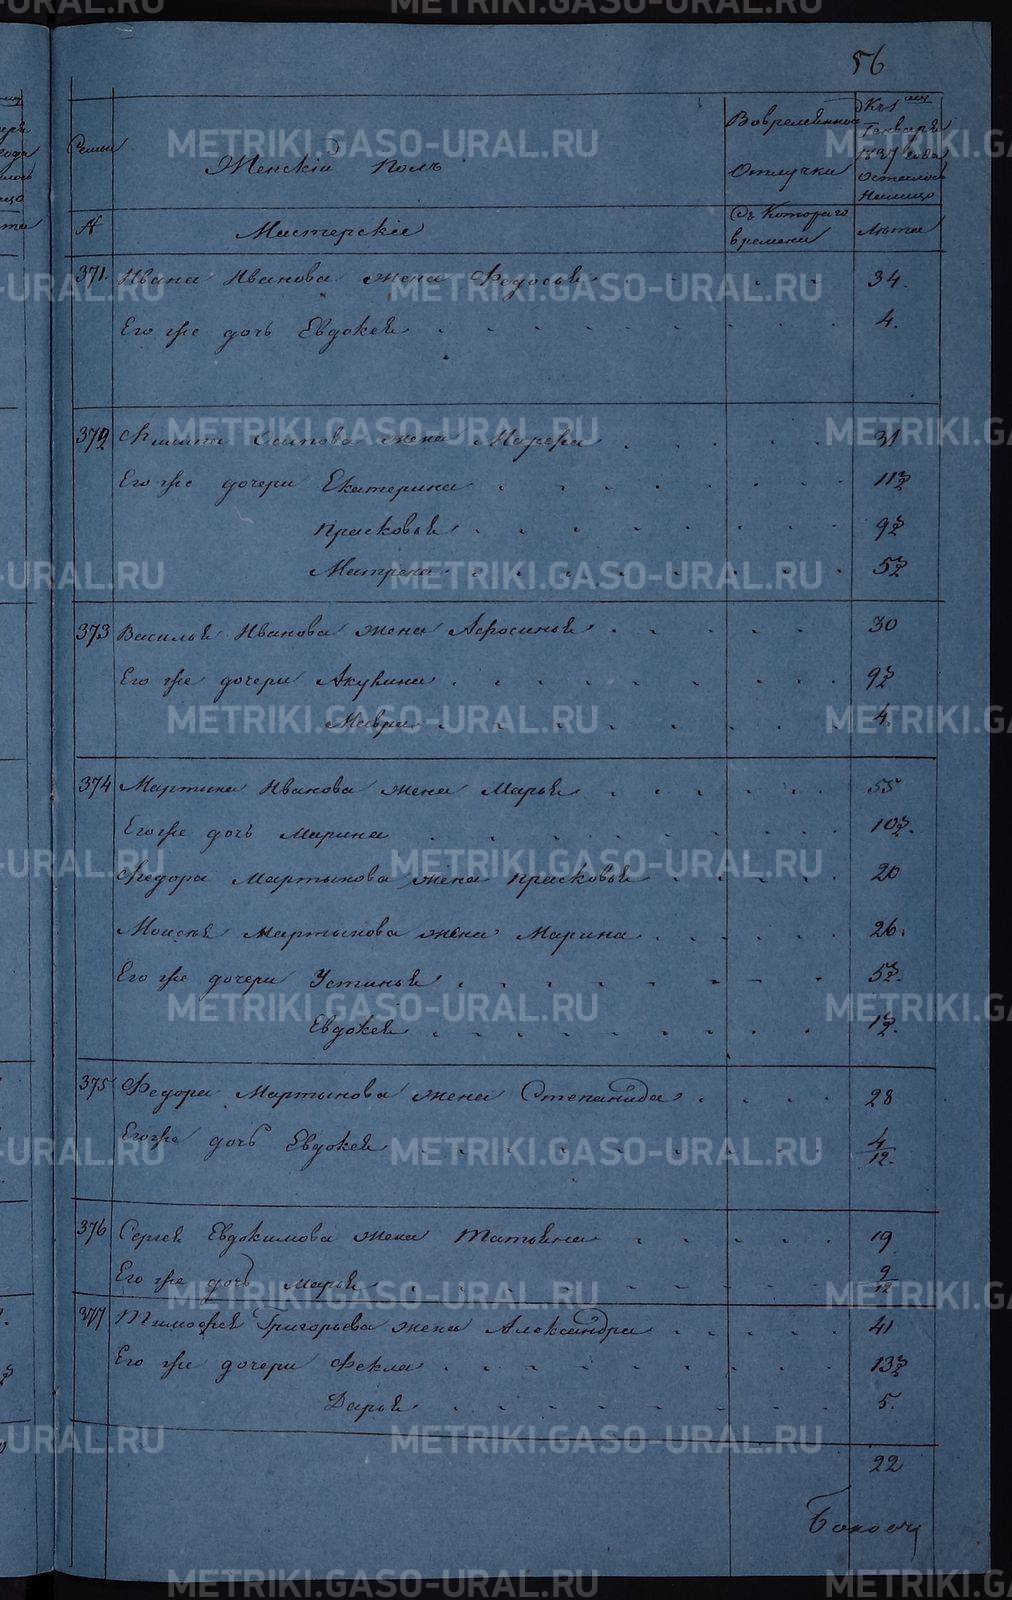 56
Семьи
Женскій Полъ
Вовременной Отлучки
Къ 1му Генваря 1837 года Осталось Налицо
№
Мастерскіе
Съ Котораго времени
Лѣта
371. Ивана Иванова жена Федосья 34.
Его же дочь Евдокея 4.
372 Никиты Осипова жена Марфа 31
Его же дочери Екатерина 11½
Прасковья 9½
Матрена 5½
373 Василья Иванова жена Афросинья 30
Его же дочери Акулина 9½
Мавра 4.
374 Мартина Иванова жена Марья 55
Его же дочь Марина 10½.
Федора Мартынова жена Прасковья 20
Моисея Мартынова жена Марина 26.
Его же дочери Устинья 5½.
Евдокея 1½.
375 Федора Мартынова жена Степанида 28
Его же дочь Евдокея 4/12.
376 Сергея Евдокимова жена Татьяна 19
Его же дочь Марья 9/12
377 Тимофея Григорьева жена Александра 41
Его же дочери Фекла 13½
Дарья 5.
22
METRIKI.GASO-URAL.RU